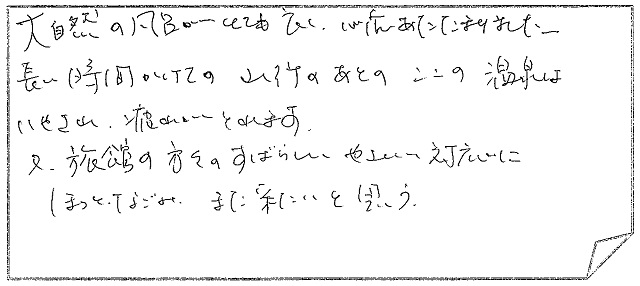 大自然の風景がとても良く、心があたたまりました。
長い時間かけての山行のあとのここの温泉は
いやされ、疲れがとれます。
又、旅館の方々のすばらしいやさしい対応に
ほっとしてなごみ、また来たいと思う。